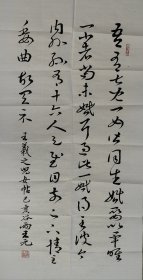 吾有七兒一女皆同生婚娶以畢唯
一小者尚未婚耳過此一婚便得至彼今
内外孫有十六人足慰目前足下情至
委曲故具示 王羲之兒女帖